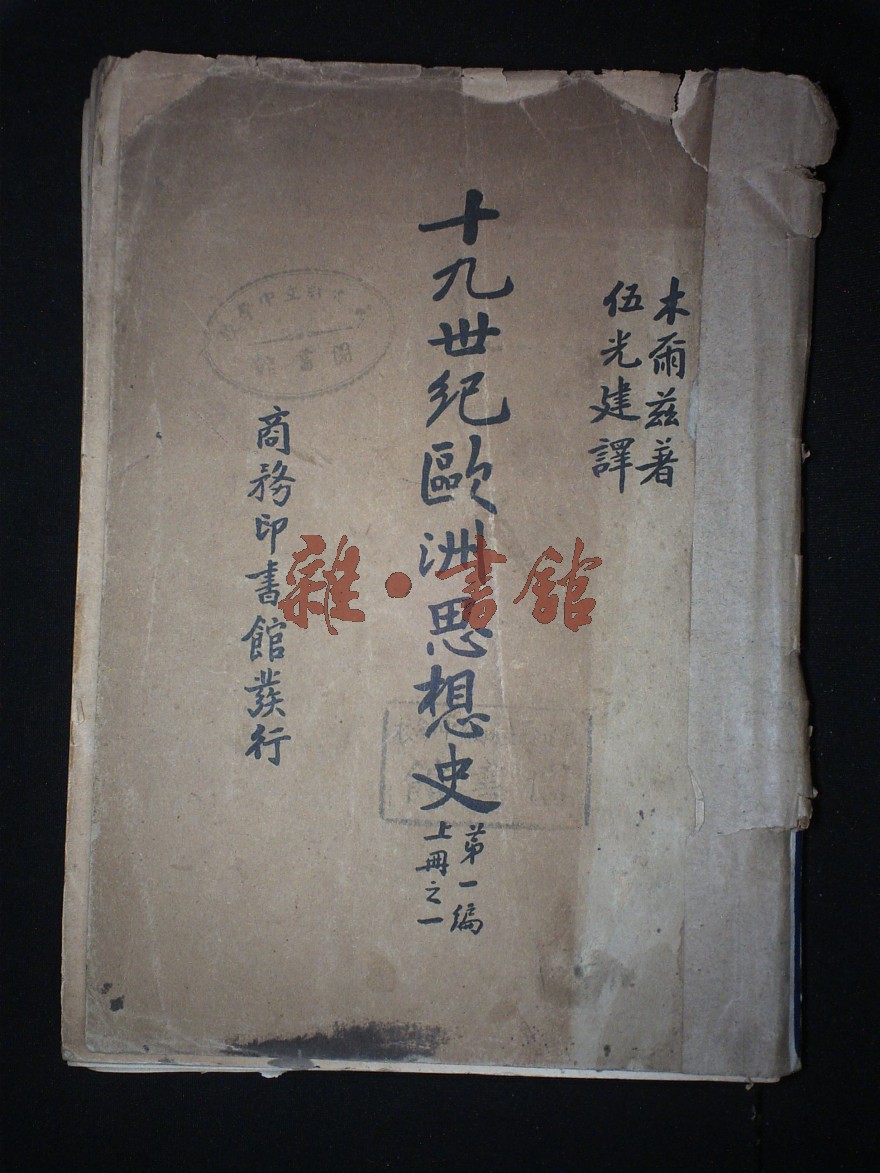 木爾茲著
伍光建譯
十九世紀歐洲思想史
第一編
上冊之一
商務印書館發行
圖書館
雜·書館